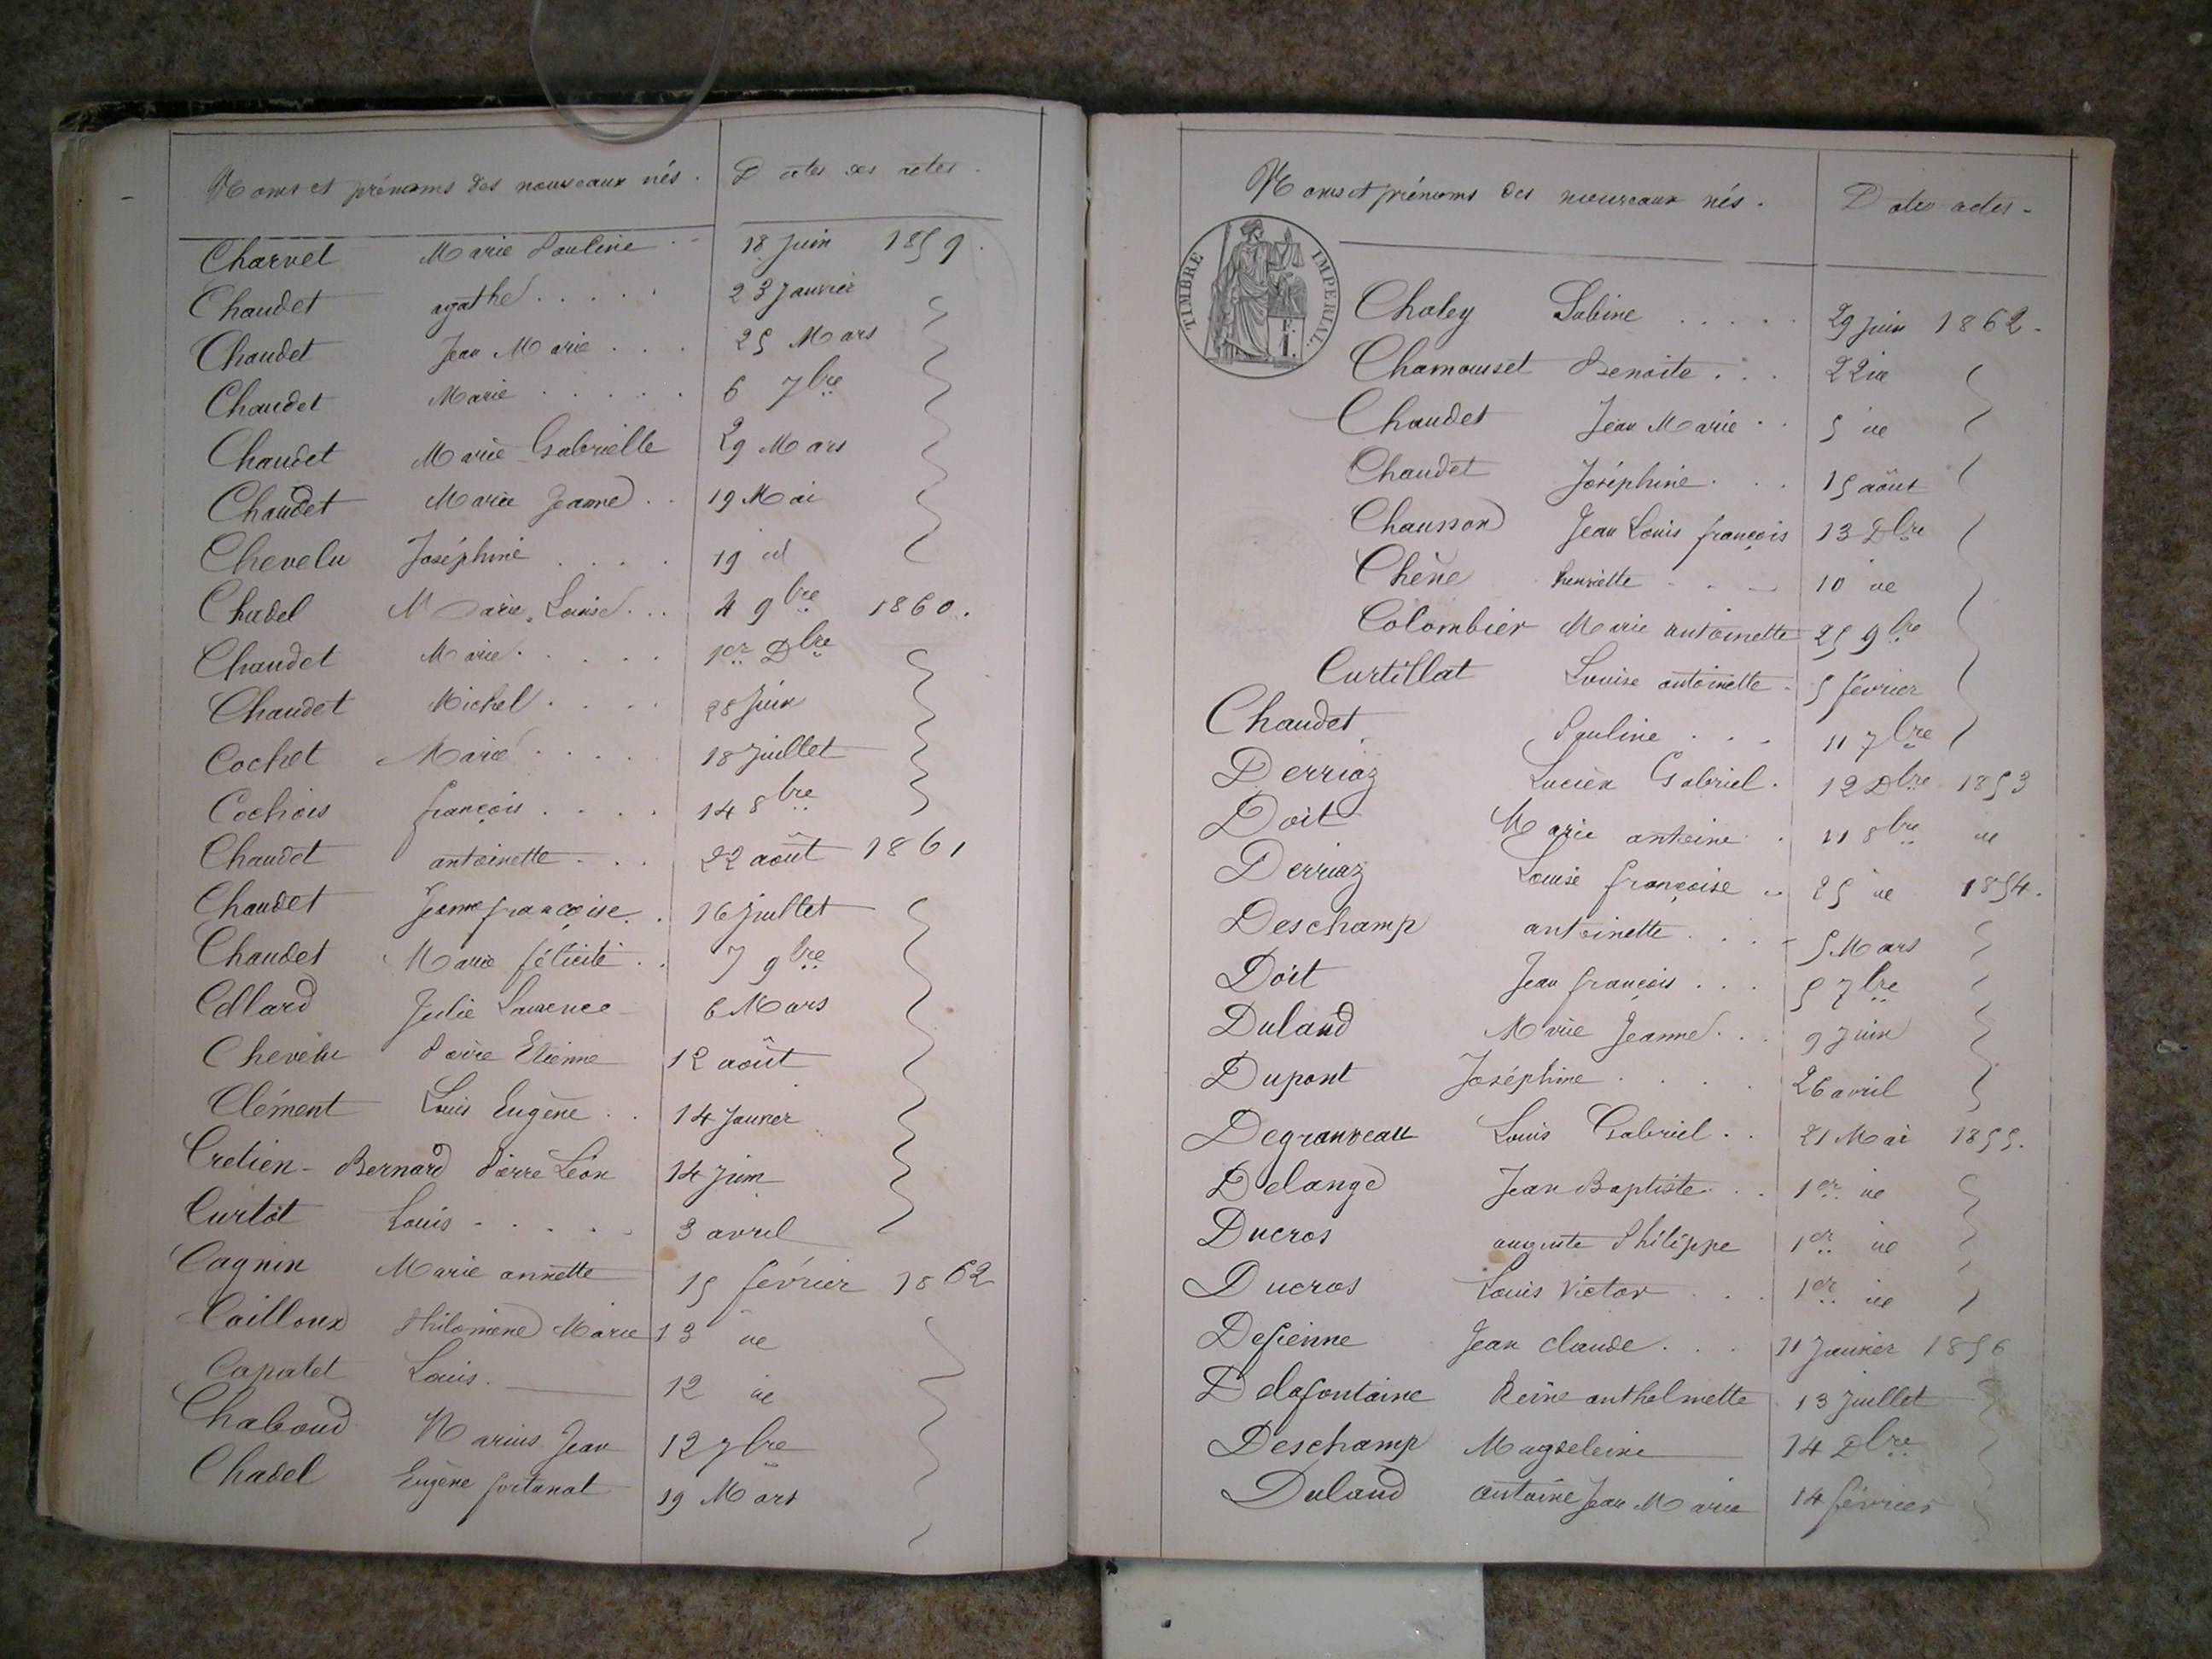 Noms et prénoms des nouveaux nés. Dates des actes.
Charvet Marie Pauline 18 Juin 1859.
Chaudet agathe 23 Janvier
Chaudet Jean Marie 25 Mars
Chaudet Marie 6 7bre
Chaudet Marie Gabrielle 29 Mars
Chaudet Marie Jeanne 19 Mai
Chevelu Joséphine 19 id
Chadel Marie Louise 4 9bre 1860.
Chaudet Marie 1er Dbre
Chaudet Michel 28 Juin
Cochet Marie 18 Juillet
Cochois françois 14 8bre
Chaudet antoinette 22 août 1861
Chaudet Jeanne françoise 16 juillet
Chaudet Marie félicité 7 9bre
Collard Julie Laurence 6 Mars
Chevelu Pierre Etienne 12 août
Clément Louis Eugène 14 Janvier
Cretien - Bernard Pierre Léon 14 Juin
Curtet Louis 3 avril
Cagnin Marie annette 15 février 1862
Cailloux Philomène Marie 13 id
Capatet Louis 12 id
Chaboud Marius Jean 12 7bre
Chadel Eugène fortunat 19 Mars
Noms et prénoms des nouveaux nés. Dates actes.
TIMBRE IMPERIAL
Chaley Sabine 29 Juin 1862.
Chamousset Benoite 22 id
Chaudet Jean Marie 5 id
Chaudet Joséphine 15 août
Chausson Jean Louis françois 13 Dbre
Chêne henriette 10 id
Colombier Marie antoinette 25 9bre
Curtillat Louise antoinette 5 février
Chaudet Pauline 11 7bre
Derriaz Lucien Gabriel 12 Dbre 1853
Doit Marie antoine 11 8bre id
Derriaz Louise françoise 25 id 1854.
Deschamp antoinette 5 Mars
Doit Jean françois 5 7bre
Duland Marie Jeanne 9 Juin
Dupont Joséphine 26 avril
Degranveau Louis Gabriel 21 Mai 1855.
Delange Jean Baptiste 1er id
Ducros auguste Philippe 1er id
Ducros Louis Victor 1er id
Defienne Jean claude 11 Janvier 1856
Delafontaine Reine anthelmette 13 Juillet
Deschamp Magdeleine 14 Dbre
Duland antoine Jean Marie 14 février